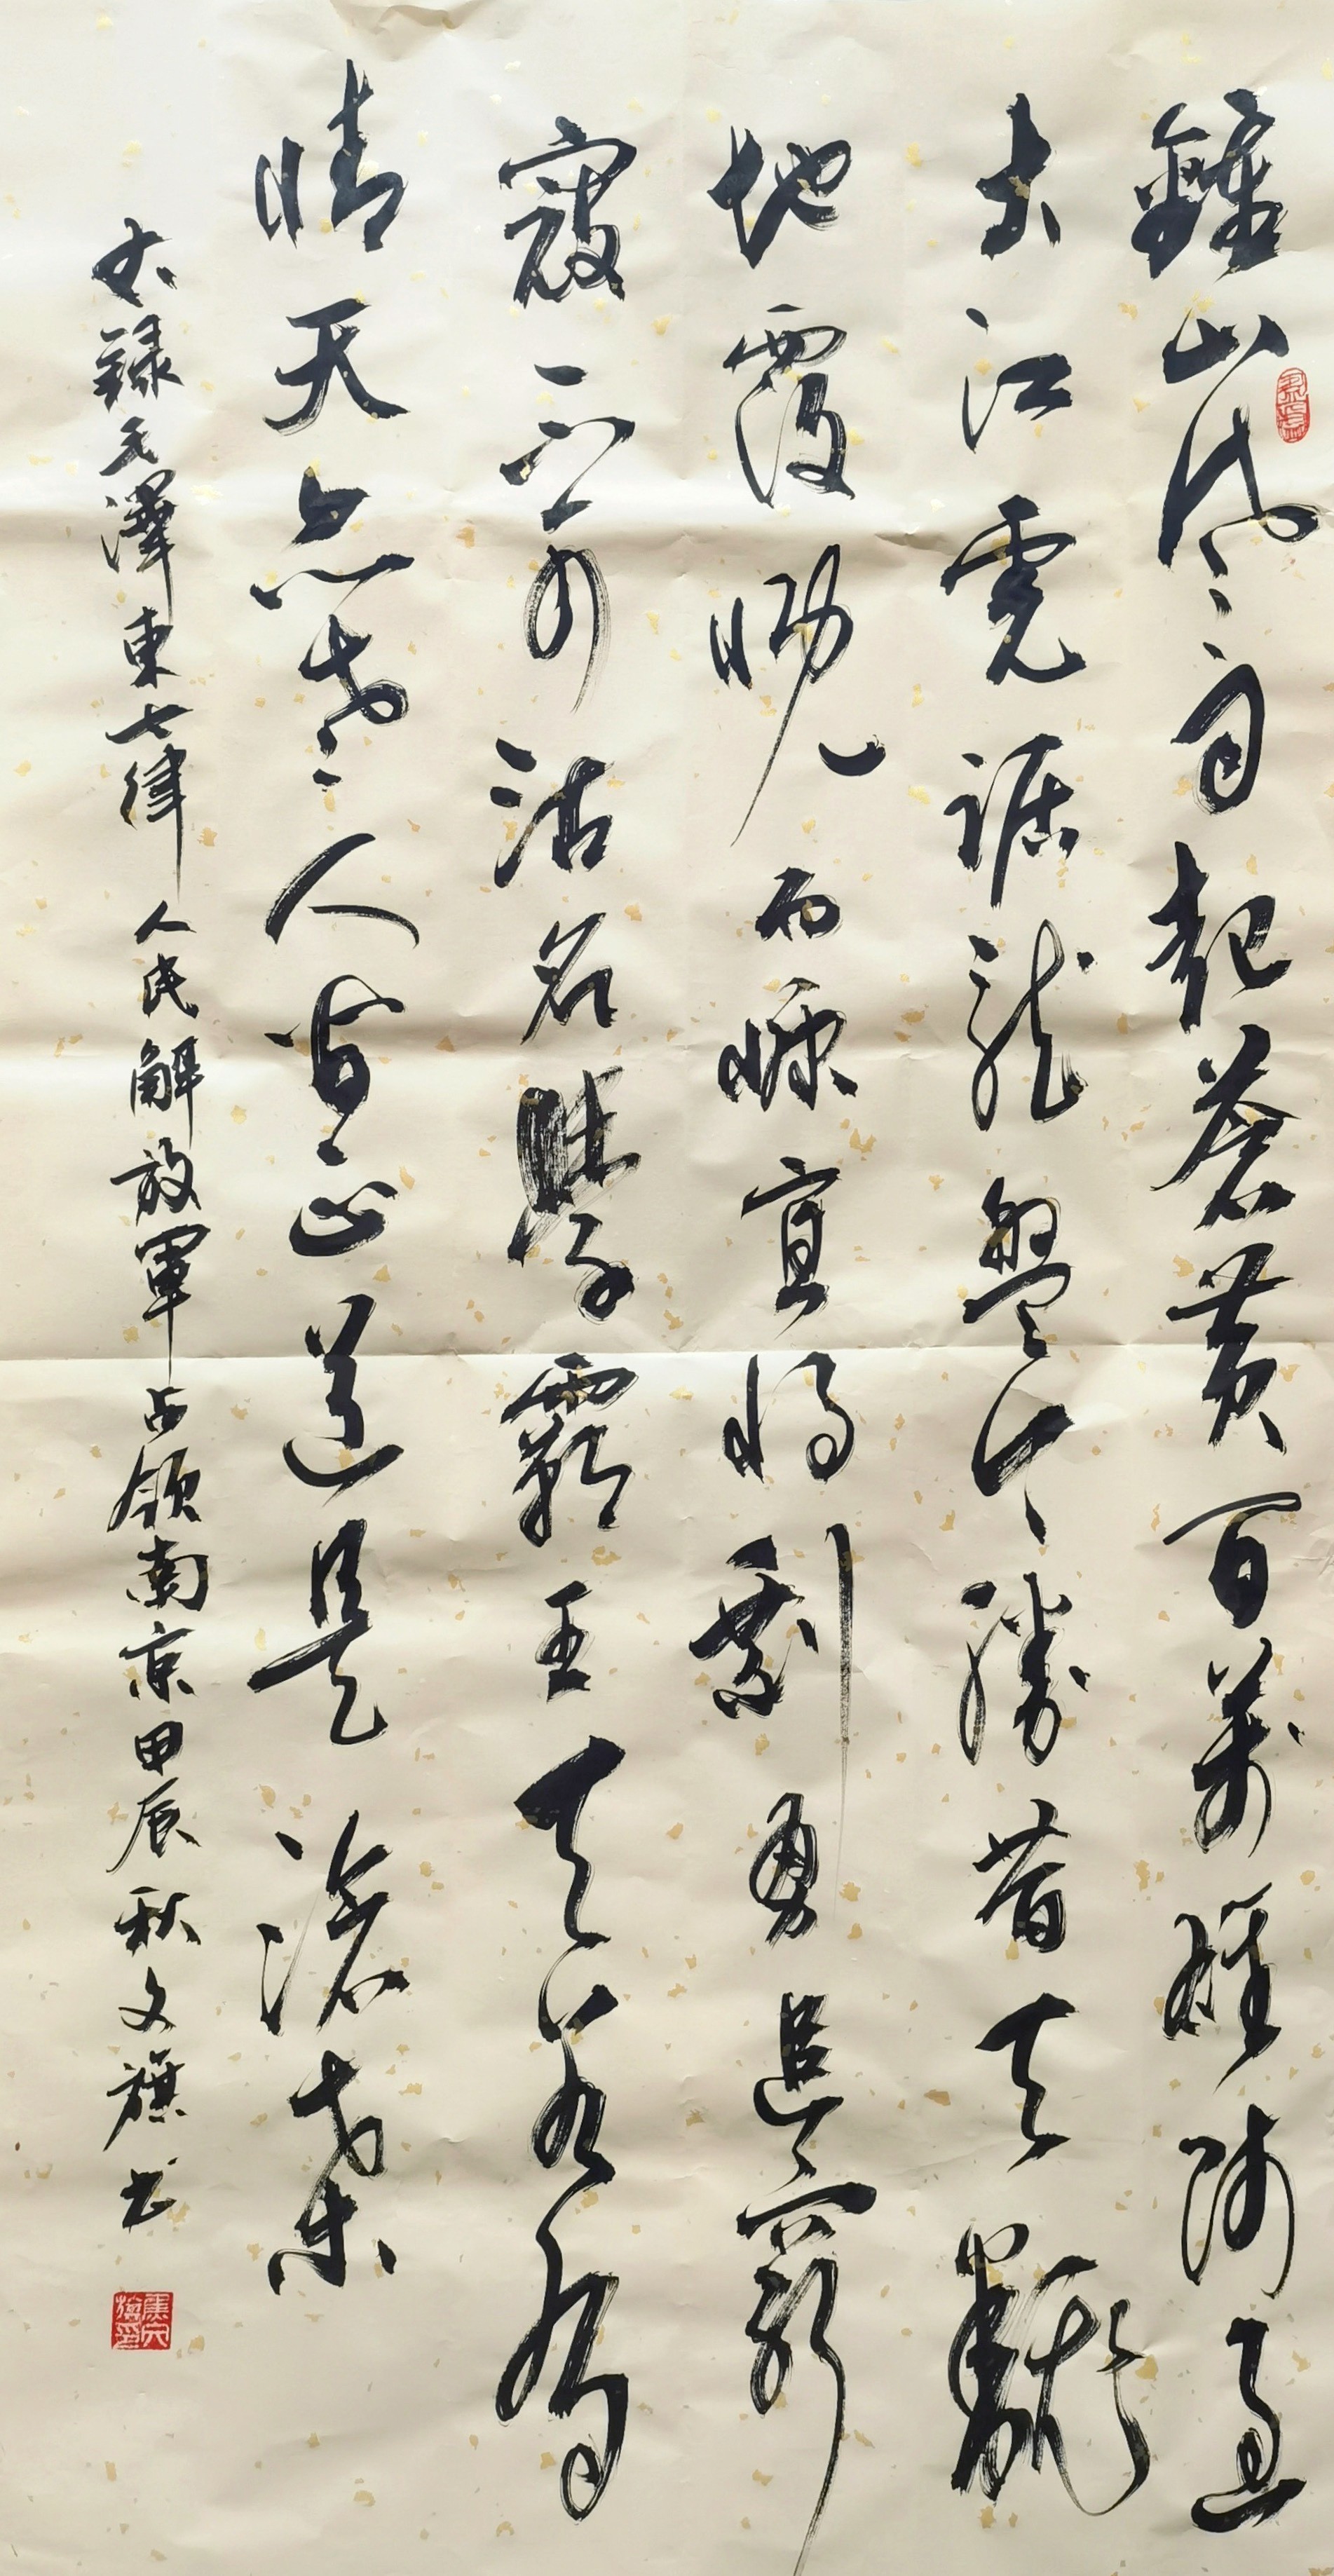 鍾山風雨起蒼黃百萬雄師過
大江虎踞龍盤今勝昔天飜
地覆慨而慷宜將剩勇追窮
寇不可沽名學霸王天若有
情天亦老人間正道是滄桑
右錄毛澤東七律人民解放軍占領南京甲辰秋文旗书
焦文旗印